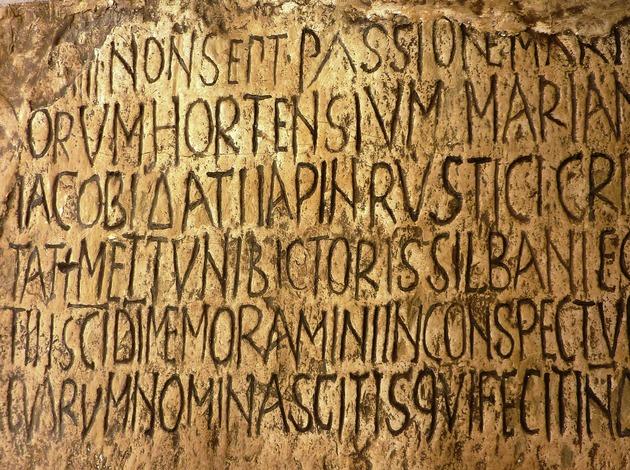 III NON SEPT · PASSIONE MART
ORVM HORTENSIVM MARIAN
IACOBI DATI IAPIN RVSTICI CRI
TAT METTVNI BICTORIS SILBANI EG
TII SCI DI MEMORAMINI IN CONSPECTV
QVARVM NOMINA SCITIS QVI FECIT IND